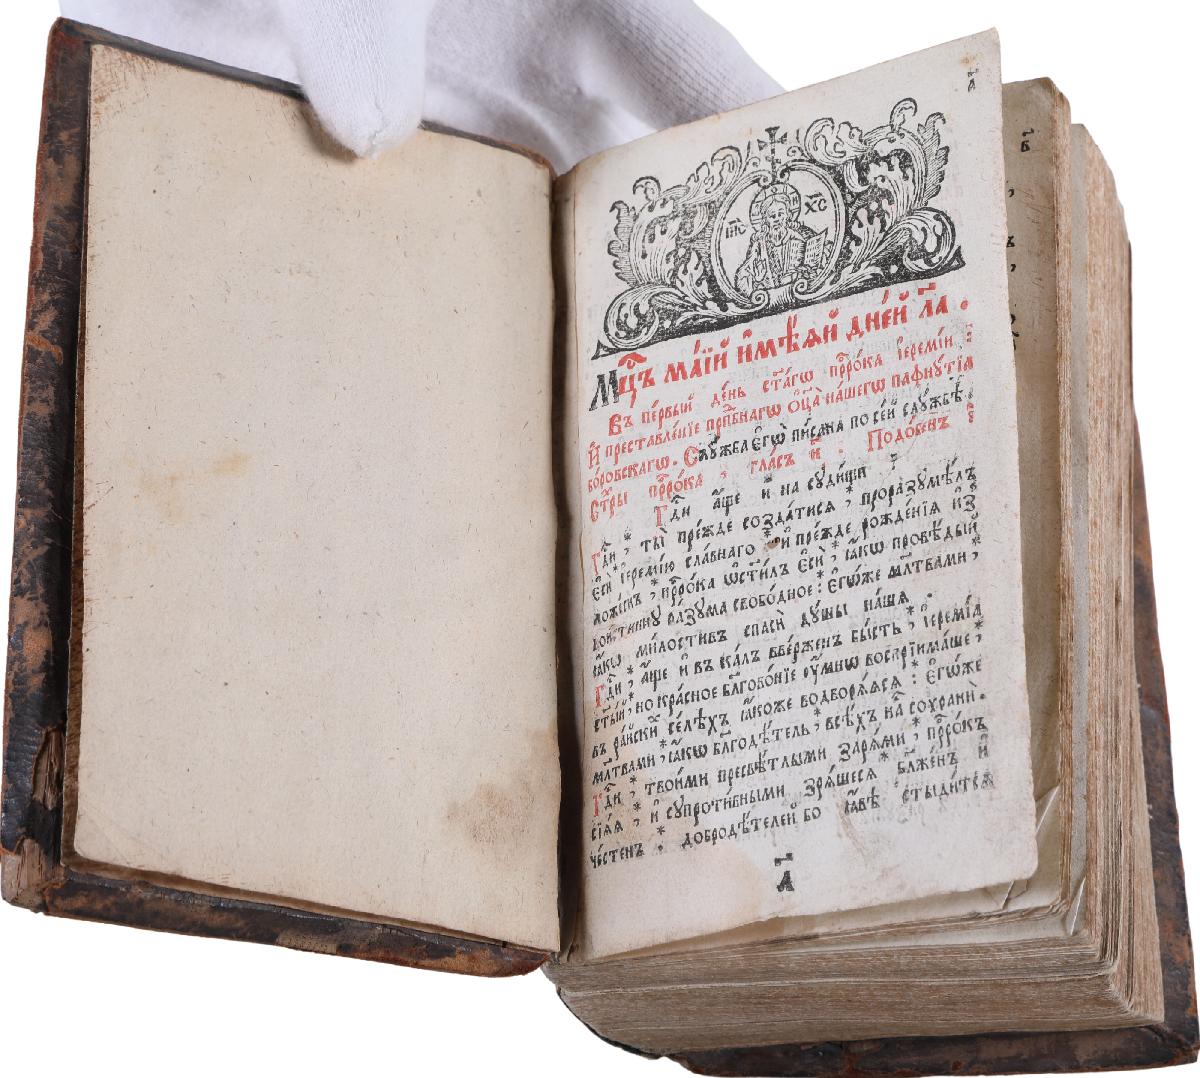 а҃
І҆И҃С Х҃С
Мц҃ъ ма́їй и҆мѣ́ѧй дне́й л҃а .
Въ пе́рвый де́нь ст҃а́гѡ прⷪ҇ро́ка і҆еремі́и :
И҆ преставле́нїе прпⷣбнагѡ ѻ҆ц҃а̀ на́шегѡ пафну́тїѧ
бо́ровскагѡ . Слꙋ́жба є҆гѡ̀ пи́сана по се́й слꙋ́жбѣ .
Стⷯры прⷪ҇ро́ка , гла́съ и҃ . Подо́бенъ :
Гдⷭ҇и а҆́ще и҆ на сꙋди́щи
Гдⷭ҇и , ты̀ пре́жде созда́тисѧ * проразꙋмѣ́лъ
є҆сѝ і҆еремі́ю сла́внаго * и҆ пре́жде рожде́нїѧ и҆з̾
ложе́снъ * прⷪ҇ро́ка ѡ҆ст҃и́лъ є҆сѝ * ꙗ҆́кѡ провѣ́дый
во́истиннꙋ ра́зꙋма свобо́дное : є҆гѡ́же мл҃твами ,
ꙗ҆́кѡ ми́лостивъ спасѝ дꙋ́шы на́шѧ .
Гдⷭ҇и , а҆́ще и҆ въ ка́лъ вве́рженъ бы́сть * і҆еремі́ѧ
ст҃ы́й , но кра́сное бл҃гово́нїе ᲂу҆́мнѡ воспрїима́ше *
въ ра́йски́й се́лѣхъ ꙗ҆́коже водворѧ́ѧсѧ : є҆гѡ́же
мл҃твами , ꙗ҆́кѡ бл҃годѣ́тель * всѣ́хъ на́съ сохранѝ .
Гдⷭ҇и , твои́ми пресвѣ́тлыми зарѧ́ми * прⷪ҇ро́къ
сїѧ́ѧ , и҆ сꙋпроти́вными зрѧ́щесѧ * бл҃же́нъ и҆
че́стенъ . * добродѣ́телей бо ꙗ҆́вѣ стыди́тсѧ
а҃